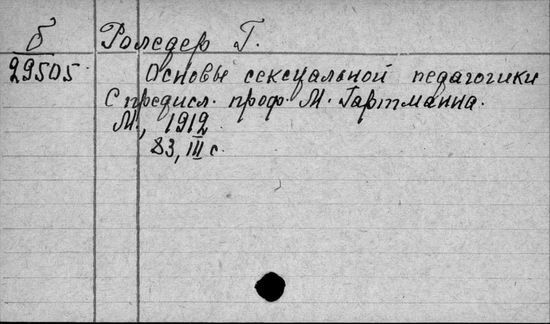 б Роледер Г.
29505. Основы сексуальной педагогики
С предисл. проф. М. Гартманна.
М., 1912
83, III с.